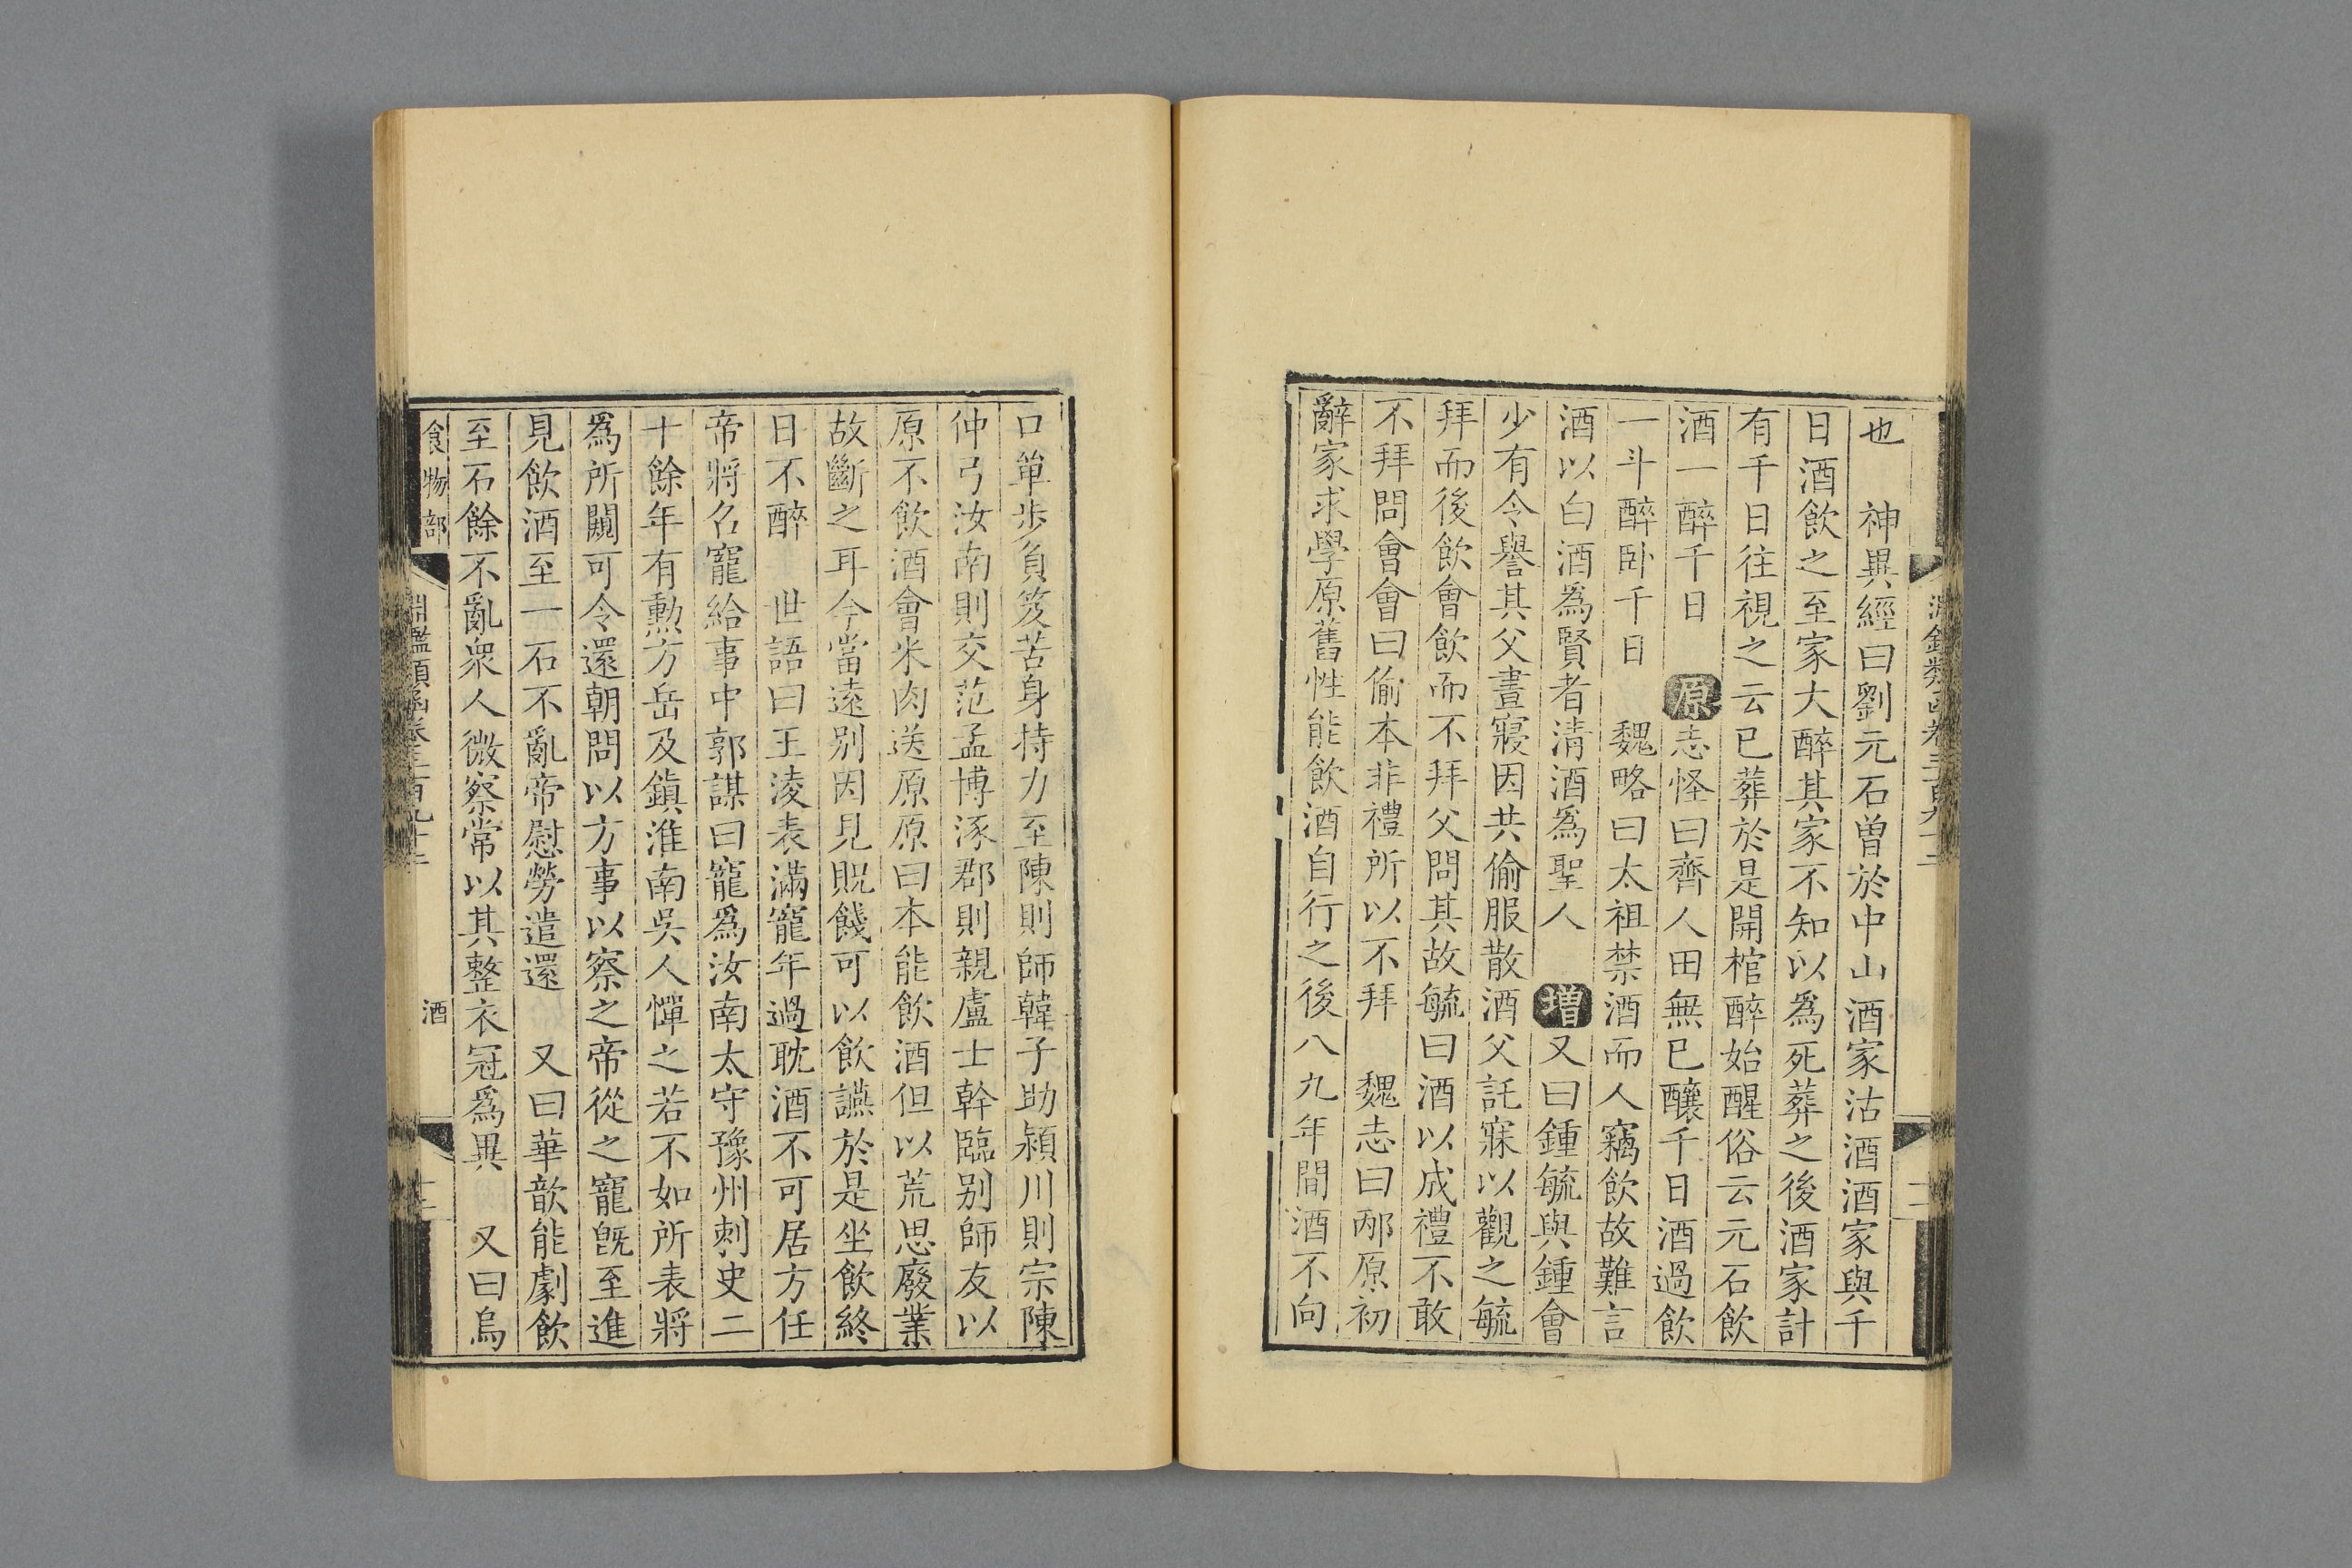 也　神異經曰劉元石曽於中山酒家沽酒酒家與千
日酒飲之至家大醉其家不知以爲死葬之後酒家計
有千日往視之云已葬於是開棺醉始醒俗云元石飲
酒一醉千日　原志怪曰齊人田無已釀千日酒過飲
一斗醉卧千日　魏略曰太祖禁酒而人竊飲故難言
酒以白酒爲賢者清酒爲聖人　增又曰鍾毓與鍾會
少有令譽其父晝寢因共偷服散酒父託寐以觀之毓
拜而後飲會飲而不拜父問其故毓曰酒以成禮不敢
不拜問會會曰偷本非禮所以不拜　魏志曰邴原初
辭家求學原舊性能飲酒自行之後八九年間酒不向
口單歩負笈苦身持力至陳則師韓子助潁川則宗陳
仲弓汝南則交范孟博涿郡則親盧士幹臨别師友以
原不飲酒會米肉送原原曰本能飲酒但以荒思廢業
故斷之耳今當遠别因見貺餞可以飲讌於是坐飲終
日不醉　世語曰王淩表滿寵年過耽酒不可居方任
帝將召寵給事中郭謀曰寵爲汝南太守豫州刺史二
十餘年有勲方岳及鎮淮南吳人憚之若不如所表將
爲所闚可令還朝問以方事以察之帝從之寵旣至進
見飲酒至一石不亂帝慰勞遣還　又曰華歆能劇飲
至石餘不亂衆人微察常以其整衣冠爲異　又曰烏
食物部
淵鑑類函卷三百九十二
酒